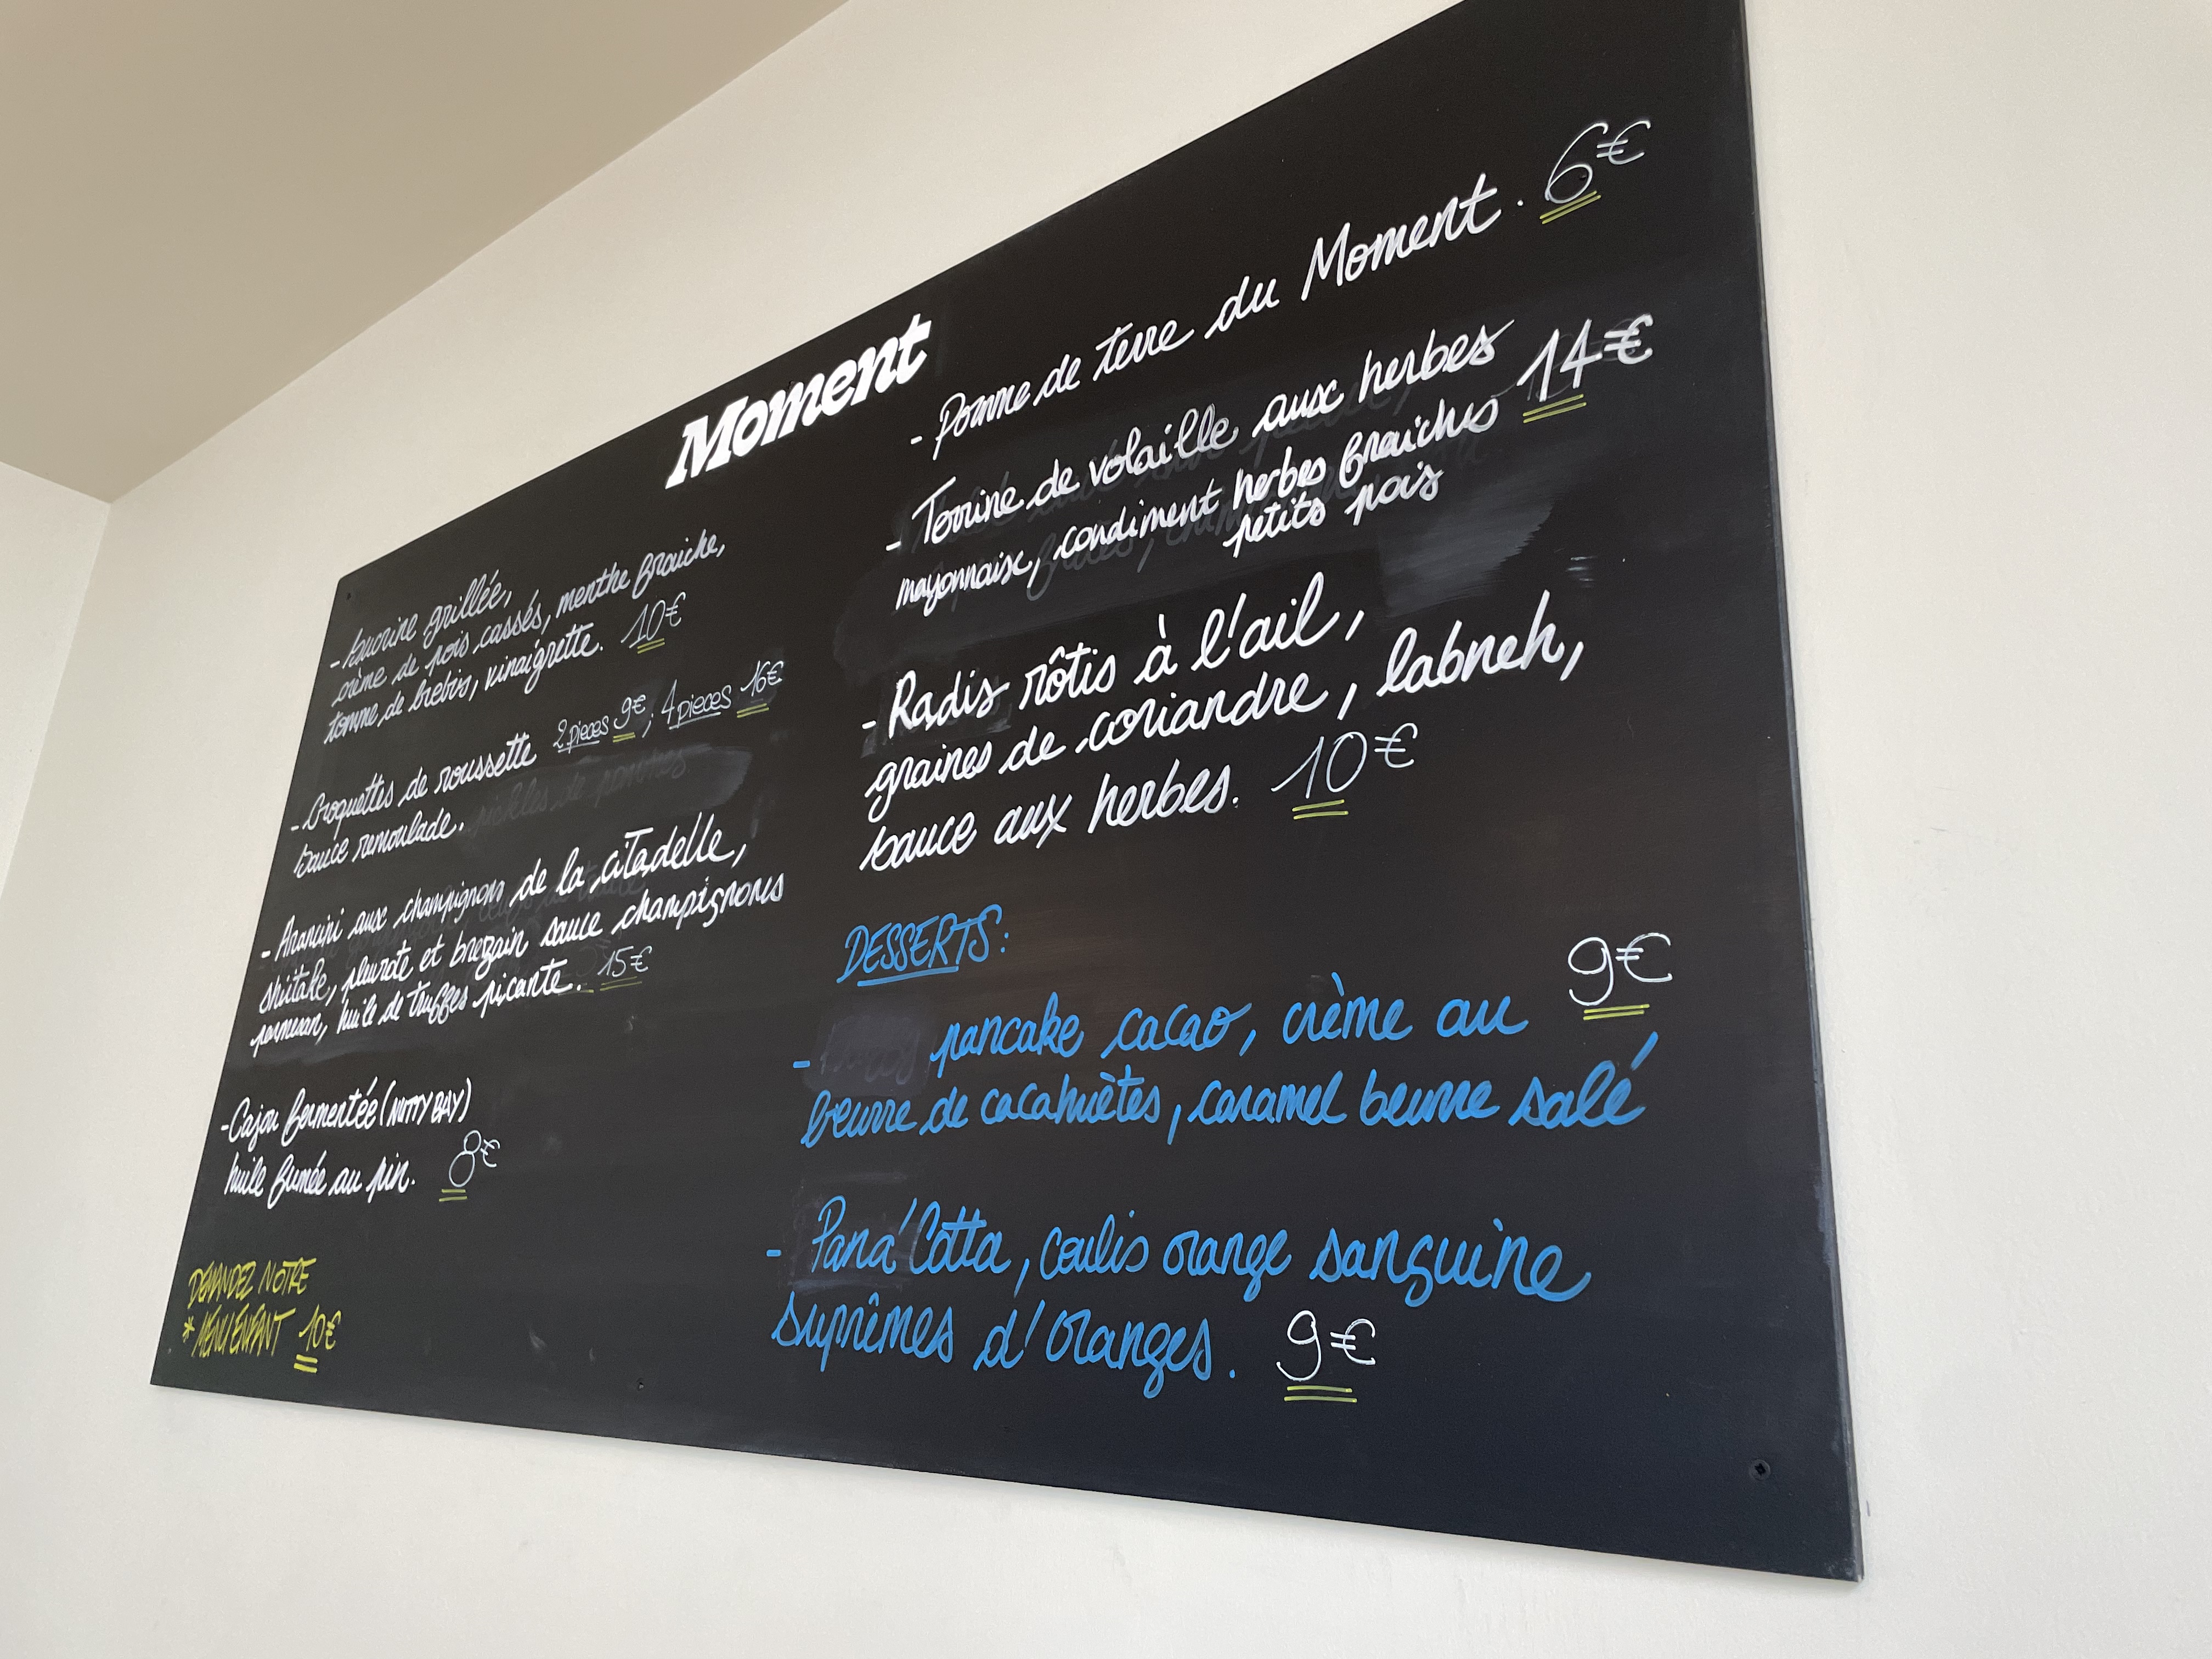 Moment
- Sucrine grillée,
crème de pois cassés, menthe fraiche,
tomme de brebis, vinaigrette. 10€
- Croquettes de roussette 2 pieces 9€; 4 pieces 16€
sauce remoulade.
- Arancini aux champignons de la citadelle,
shiitake, pleurote et sauce champignons
parmesan, huile de truffes picante. 15€
- Cajou fermentée (NUTTY BAY)
huile fumée au pin. 8€
DEMANDEZ NOTRE
* MENU ENFANT 10€
- Pomme de terre du Moment. 6€
- Terrine de volaille aux herbes 14€
mayonnaise, condiment herbes fraiches
petits pois
- Radis rôtis à l'ail,
graines de coriandre, labneh,
sauce aux herbes. 10€
DESSERTS:
- pancake cacao, crème au 9€
beurre de cacahuètes, caramel beurre salé
- Pana'Cotta, coulis orange sanguine
suprêmes d'oranges. 9€